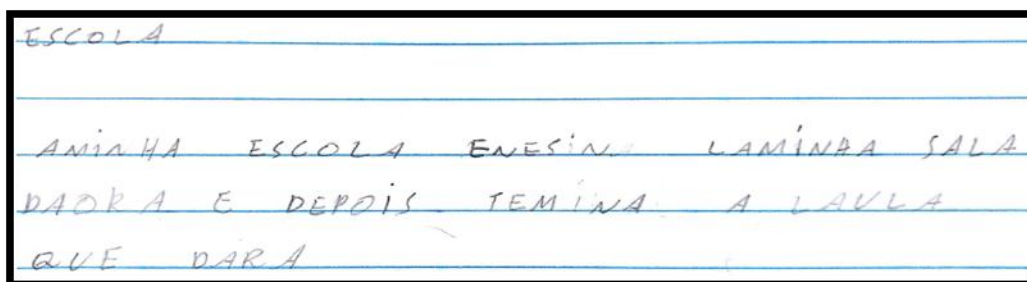 ESCOLA
AMINHA ESCOLA ENESIN LAMINHA SALA
DAORA E DEPOIS TEMINA A LAULA
QUE DARA